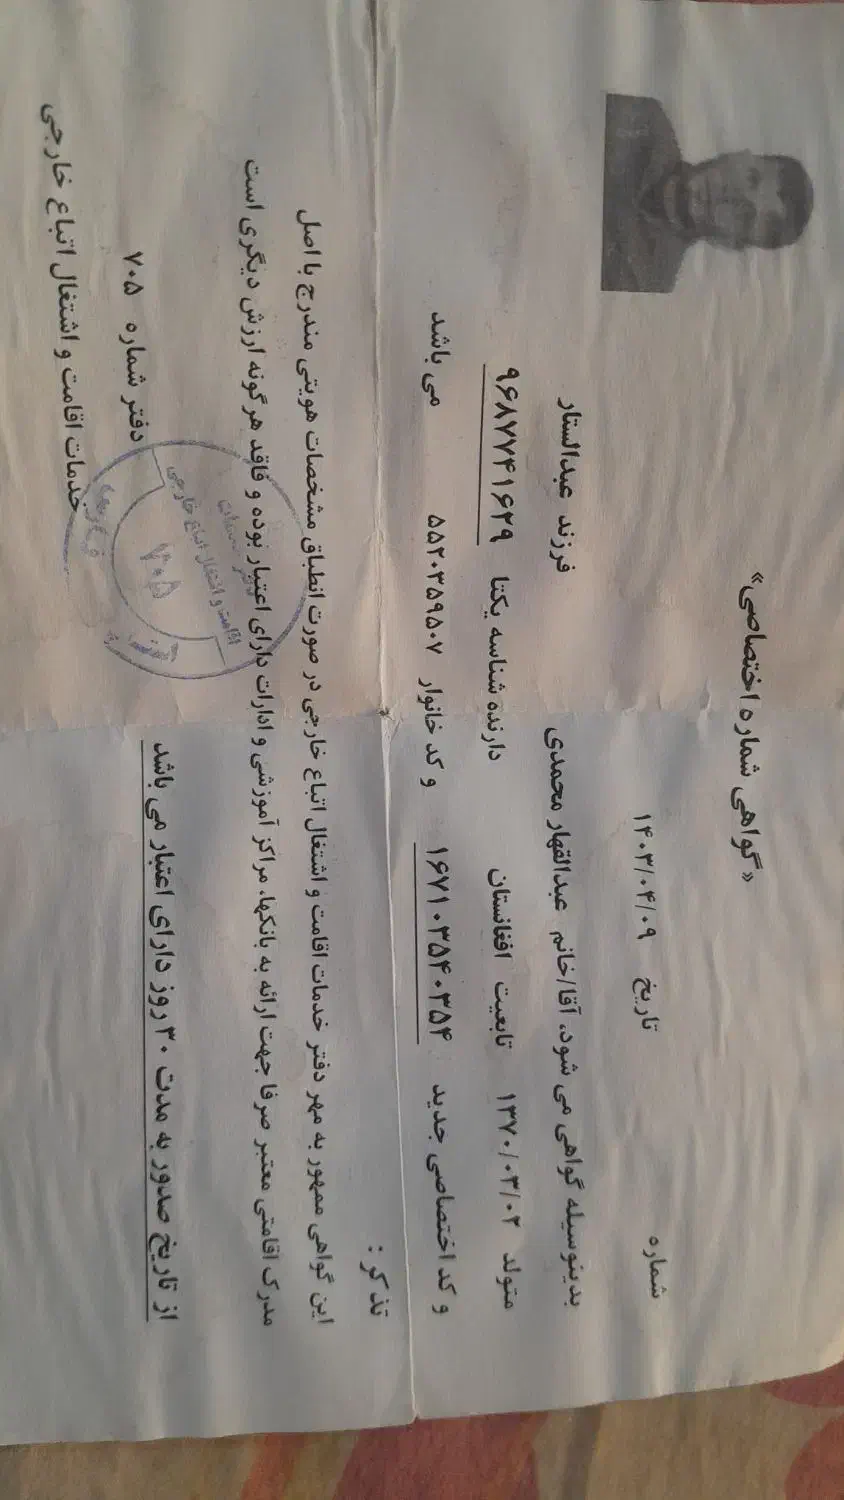 «گواهی شماره اختصاصی»
شماره تاریخ ۱۴۰۳/۰۴/۰۹
بدینوسیله گواهی می شود، آقا/خانم عبدالقهار محمدی فرزند عبدالستار
متولد ۱۳۷۰/۰۳/۰۲ تابعیت افغانستان دارنده شناسه یکتا ۹۶۸۷۷۴۱۶۲۹
و کد اختصاصی جدید ۱۶۷۱۰۳۵۴۰۳۵۴ و کد خانوار ۵۵۲۰۳۵۹۵۰۷ می باشد
تذکر :
این گواهی ممهور به مهر دفتر خدمات اقامت و اشتغال اتباع خارجی در صورت انطباق مشخصات هویتی مندرج با اصل
مدرک اقامتی معتبر صرفا جهت ارائه به بانکها، مراکز آموزشی و ادارات دارای اعتبار بوده و فاقد هرگونه ارزش دیگری است
از تاریخ صدور به مدت ۳۰ روز دارای اعتبار می باشد
دفتر شماره ۷۰۵
خدمات اقامت و اشتغال اتباع خارجی
اقامت و اشتغال اتباع خارجی
۷۰۵